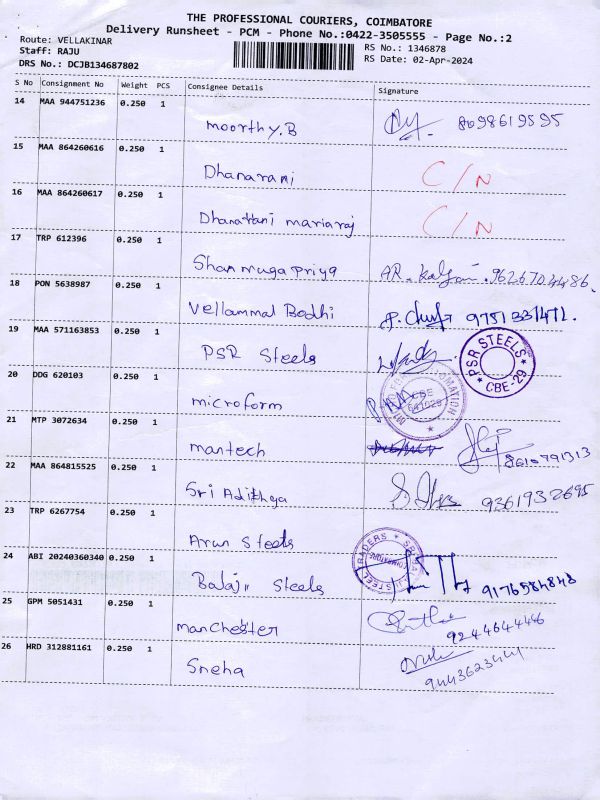 THE PROFESSIONAL COURIERS, COIMBATORE
Delivery Runsheet - PCM - Phone No.:0422-3505555 - Page No.:2
Route: VELLAKINAR
RS No.: 1346878
Staff: RAJU
RS Date: 02-Apr-2024
DRS No.: DCJB134687802
S No Consignment No Weight PCS Consignee Details Signature
14 MAA 944751236 0.250 1
Moorthy.B 8698619595
15 MAA 864260616 0.250 1
Dhanarani C/N
16 MAA 864260617 0.250 1
Dhanarani mariaraj C/N
17 TRP 612396 0.250 1
Shanmugapriya AR. Kalyani. 9626704486.
18 PON 5638987 0.250 1
Vellammal Bodhi 9751331471.
19 MAA 571163853 0.250 1
PSR Steels PSR STEELS CBE-29
20 DDG 620103 0.250 1
microform
21 MTP 3072634 0.250 1
mantech 8610791313
22 MAA 864815525 0.250 1
Sri Adithya 9361932695
23 TRP 6267754 0.250 1
Arun Steels
24 ABI 20240360340 0.250 1
Balaji Steels 9176584848
25 GPM 5051431 0.250 1
manchester 9244644446
26 HRD 312881161 0.250 1
Sneha